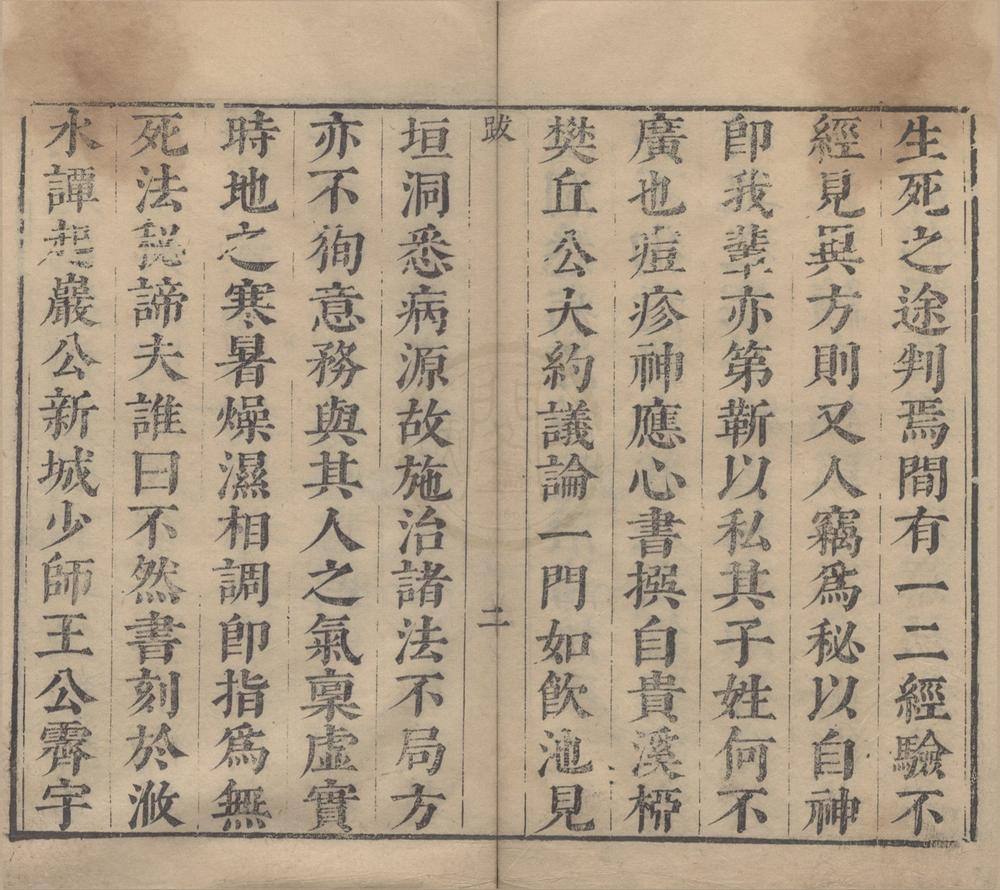 生死之途判焉間有一二經驗不
經見異方則又人竊爲秘以自神
卽我輩亦第靳以私其子姓何不
廣也痘疹神應心書撰自貴溪桺
樊丘公大約議論一門如飮池見
跋
二
垣洞悉病源故施治諸法不局方
亦不徇意務與其人之氣稟虛實
時地之寒暑燥濕相調卽指爲無
死法秘諦夫誰曰不然書刻於滁
水譚起巖公新城少師王公霽宇